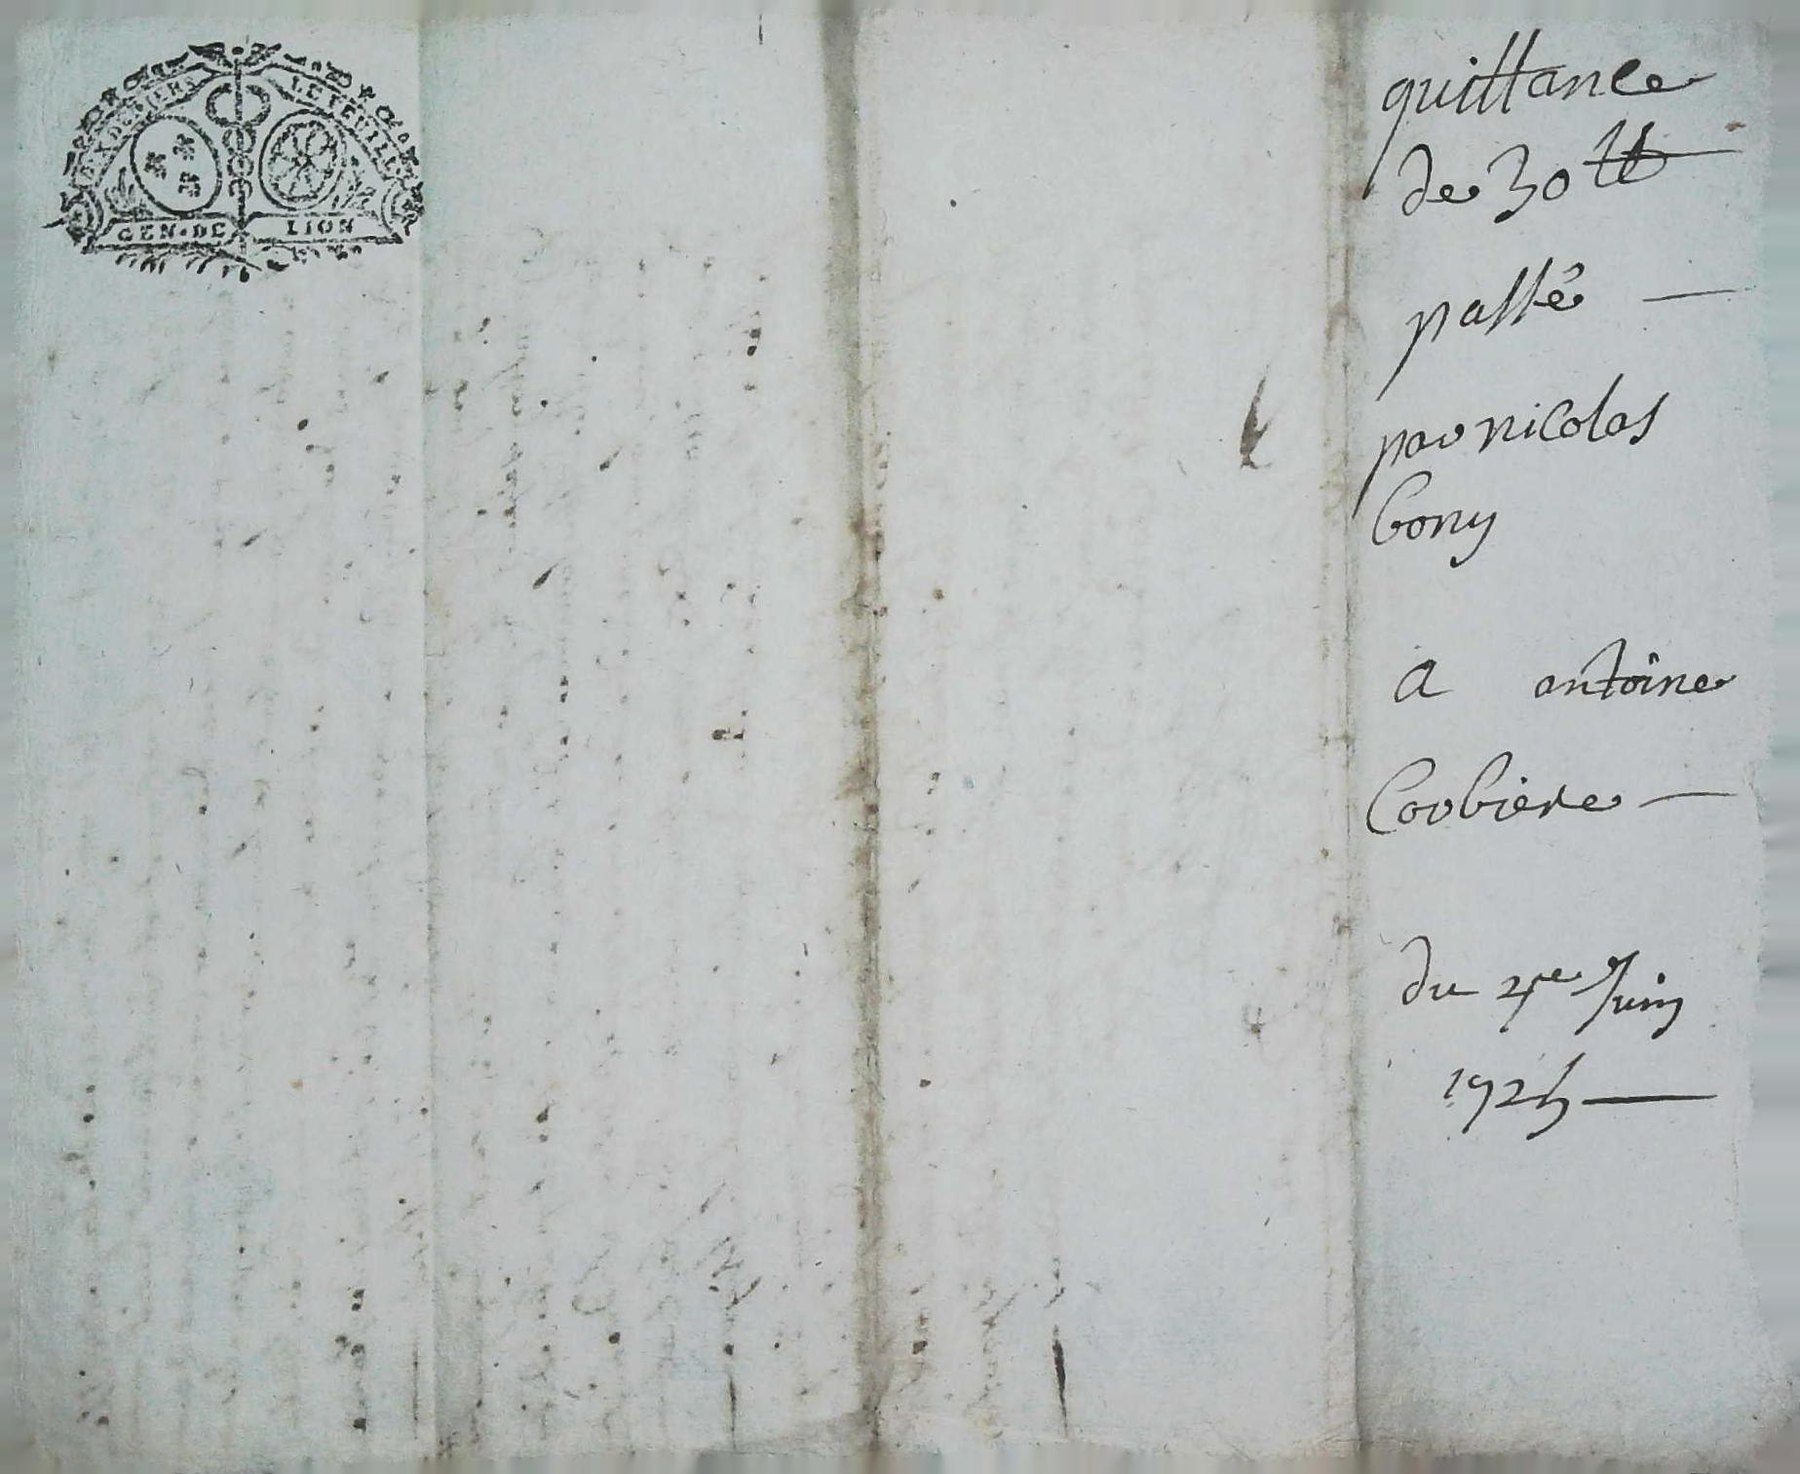 LE FEUILL
GEN·DE LION
quittance
de 30 ₶
passé —
par nicolas
bony
a antoine
Corbiere —
du 4e Juin
1725 —